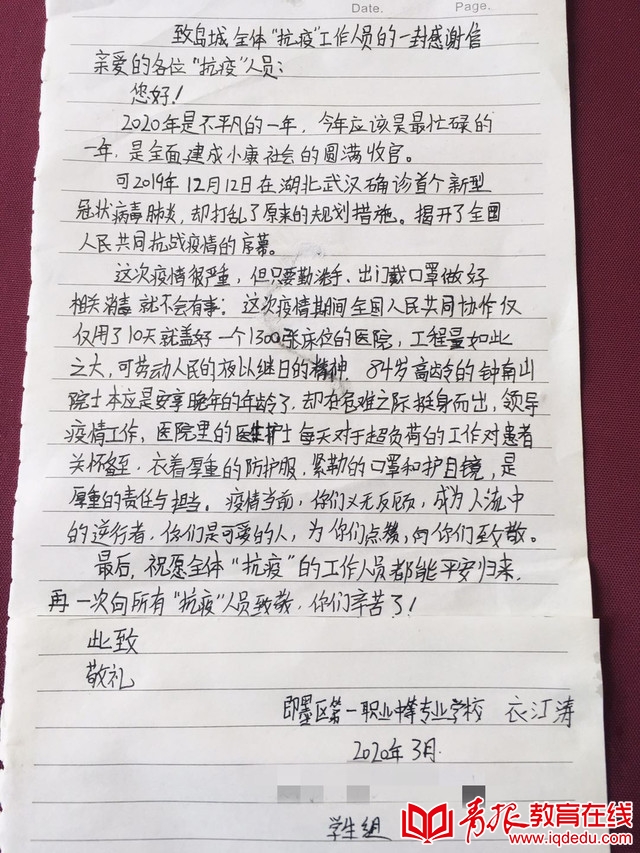 Date.
Page.
致岛城全体“抗疫”工作人员的一封感谢信
亲爱的各位“抗疫”人员：
您好！
2020年是不平凡的一年，今年应该是最忙碌的
一年，是全面建成小康社会的圆满收官。
可2019年12月12日在湖北武汉确诊首个新型
冠状病毒肺炎，却打乱了原来的规划措施。揭开了全国
人民共同抗战疫情的序幕。
这次疫情很严重，但只要勤洗手、出门戴口罩做好
相关消毒就不会有事；这次疫情期间全国人民共同协作仅
仅用了10天就盖好一个1300张床位的医院，工程量如此
之大，可劳动人民的夜以继日的精神，84岁高龄的钟南山
院士本应是安享晚年的年龄了，却在危难之际挺身而出，领导
疫情工作，医院里的医生护士每天对于超负荷的工作对患者
关怀备至，衣着厚重的防护服，紧勒的口罩和护目镜，是
厚重的责任与担当。疫情当前，你们义无反顾，成为人流中
的逆行者，你们是可爱的人，为你们点赞，向你们致敬。
最后，祝愿全体“抗疫”的工作人员都能平安归来，
再一次向所有“抗疫”人员致敬，你们辛苦了！
此致
敬礼
即墨区第一职业中等专业学校 衣江涛
2020年3月
学生组
青报教育在线
www.iqdedu.com